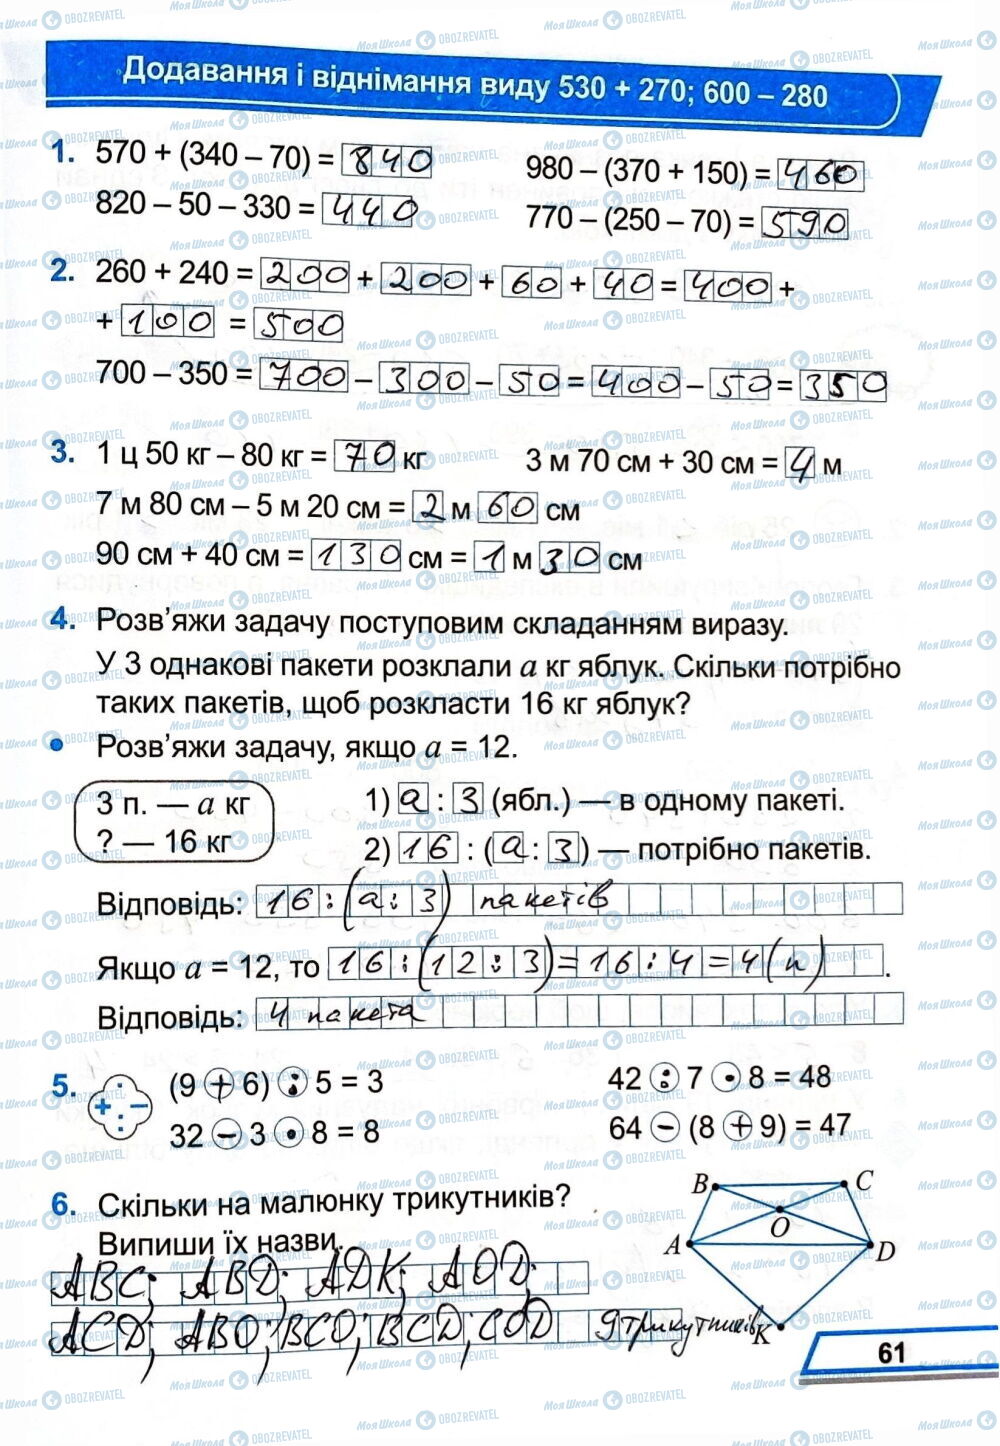 Додавання і віднімання виду 530 + 270; 600 – 280
1. 570 + (340 – 70) = 840
980 – (370 + 150) = 460
820 – 50 – 330 = 440
770 – (250 – 70) = 590
2. 260 + 240 = 200 + 200 + 60 + 40 = 400 +
+ 100 = 500
700 – 350 = 700 – 300 – 50 = 400 – 50 = 350
3. 1 ц 50 кг – 80 кг = 70 кг
3 м 70 см + 30 см = 4 м
7 м 80 см – 5 м 20 см = 2 м 60 см
90 см + 40 см = 130 см = 1 м 30 см
4. Розв’яжи задачу поступовим складанням виразу.
У 3 однакові пакети розклали a кг яблук. Скільки потрібно
таких пакетів, щоб розкласти 16 кг яблук?
• Розв’яжи задачу, якщо a = 12.
3 п. — a кг
? — 16 кг
1) a : 3 (ябл.) — в одному пакеті.
2) 16 : (a : 3) — потрібно пакетів.
Відповідь: 16 : (a : 3) пакетів
Якщо a = 12, то 16 : (12 : 3) = 16 : 4 = 4 (п).
Відповідь: 4 пакета
5. (9 + 6) : 5 = 3
42 : 7 · 8 = 48
32 – 3 · 8 = 8
64 – (8 + 9) = 47
6. Скільки на малюнку трикутників?
Випиши їх назви.
ABC; ABD; ADK; AOD;
ACD; ABO; BCO; BCD; COD 9 трикутників
B
C
O
A
D
K
61